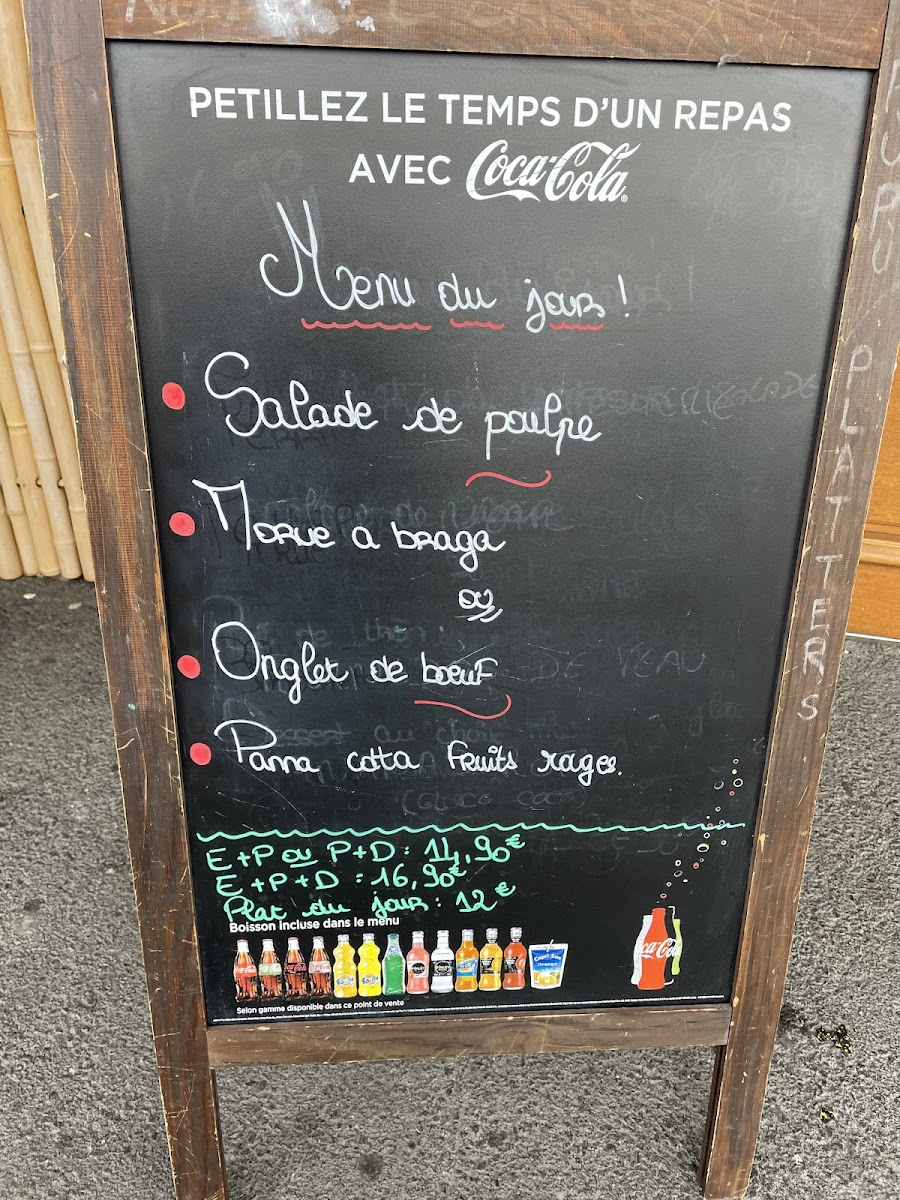 PETILLEZ LE TEMPS D'UN REPAS
AVEC Coca-Cola
Menu du jour !
Salade de poulpe
Morue a braga
ou
Onglet de bœuf
Panna cotta Fruits rages.
E+P ou P+D : 14,90€
E+P+D : 16,90€
Plat du jour : 12€
Boisson incluse dans le menu
Selon gamme disponible dans ce point de vente
Coca-Cola
PLATTERS